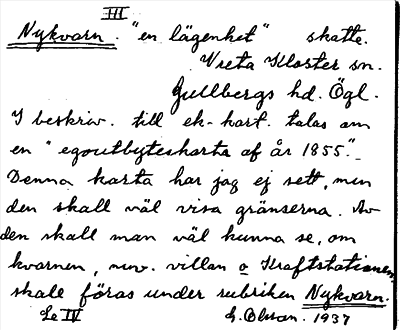 III
Nykvarn. "en lägenhet" skatte.
Vreta Kloster sn.
Gullbergs hd. Ögl.
I beskriv. till ek-kart. talas om
en "egoutbyteskarta af år 1855".
Denna karta har jag ej sett, men
den skall väl visa gränserna. Av
den skall man väl kunna se, om
kvarnen, nuv. villan o Kraftstationen
skale föras under rubriken Nykvarn.
Se IV G. Olsson. 1937